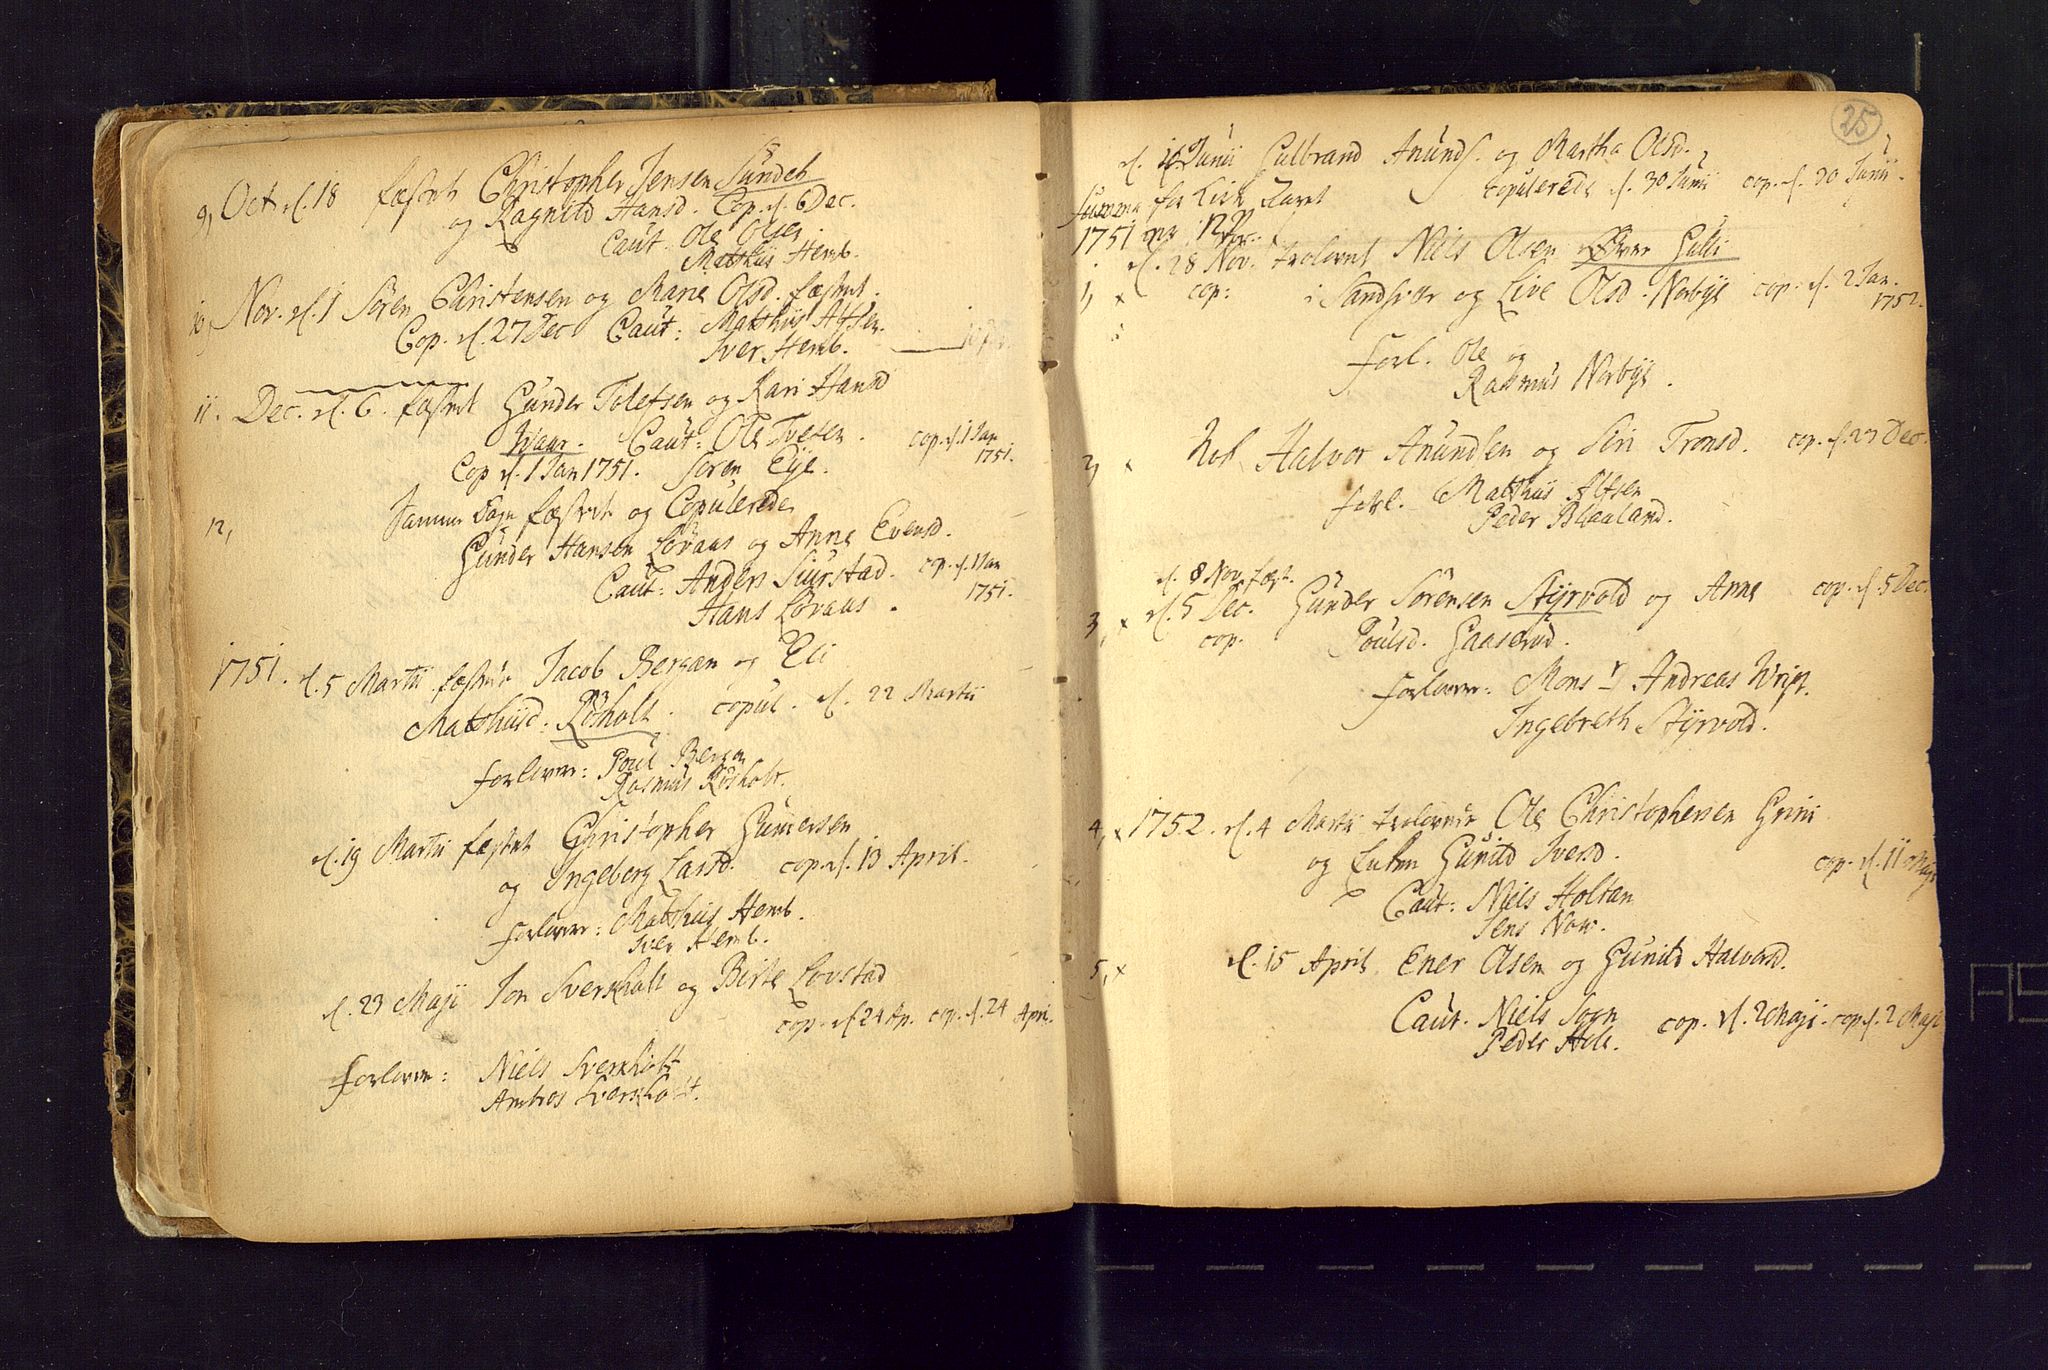 9, Oct. d. 18 fæstet Christopher Jensen Sundeh
og Ragnild Hansd. Cop. d. 6 Dec.
Caut. Ole Olsen
Matthiis Hemb.
10, Nov. d. 1 Sören Christensen og Marie Olsd. fæstet.
Cop. d. 27 Dec Caut: Matthiis Altsen.
Iver Hemb.
11. Dec. d. 6. fæstet Gunder Tolefsen og Kari Hansd
Waar. Caut: Ole Tvesen. cop. d. 1 Jan
Cop d. 1 Jan 1751. Sören Eye. 1751.
12, Samme Dage fæstet og Copulerede
Gunder Hansen Lövaas og Anne Evensd.
Caut: Anders Siurstad. cop. d. 1 Jan
Hans Lövaas. 1751.
1751. d. 5 Martii fæstet Jacob Bergan og Eli
Matthiisd. Rösholt. copul. d. 22 Martii
forlover: Poul Bergan
Rasmus Rösholt.
d. 19 Martii fæstet Christopher Gunersen
og Ingeborg Larsd. cop. d. 13 April.
forlover: Matthiis Hemb.
Iver Hemb.
d. 23 Maji Jon Sverkholt og Birte Lovstad
cop. d. 24 Ap. cop. d. 24 Apri.
forlover: Niels Sverkholt
Ambros Sverkholt.
25
d. Junii Gulbrand Anunds. og Martha Olsd.
Summa for copulerede d. 30 Junii cop. d. 30 Junii.
1751 12
d. 28 Nov. trolovet Niels Olsen Över Gulli
1, x cop: i Sandsvær og Live Olsd. Norbye cop. d. 2 Jan.
1752.
forl. Ole og
Rasmus Norbye.
2, x Halvor Anundsen og Siri Tronsd. cop. d. 27 Dec.
forl. Matthiis Altsen
Peder Blaaland.
d. 8 Nov. fæst.
3, x d. 5 Dec. Gunder Sörensen Styrvold og Anne cop. d. 5 Dec.
cop. Poulsd. Gaaserud.
forlover: Mons r Andreas
Ingebreth Styrvold.
4, x 1752. d. 4 Martii trolovede Ole Christophersen Grini
og Enken Gunild Iversd. cop. d. 11 Maji
Caut: Niels Holtan
Jens Now.
5, x d. 15 April Ener Olsen og Gunild Halvorsd.
Caut. Niels Sogn cop. d. 2 Maji. cop. d. 2 Maji
Peder Hole.